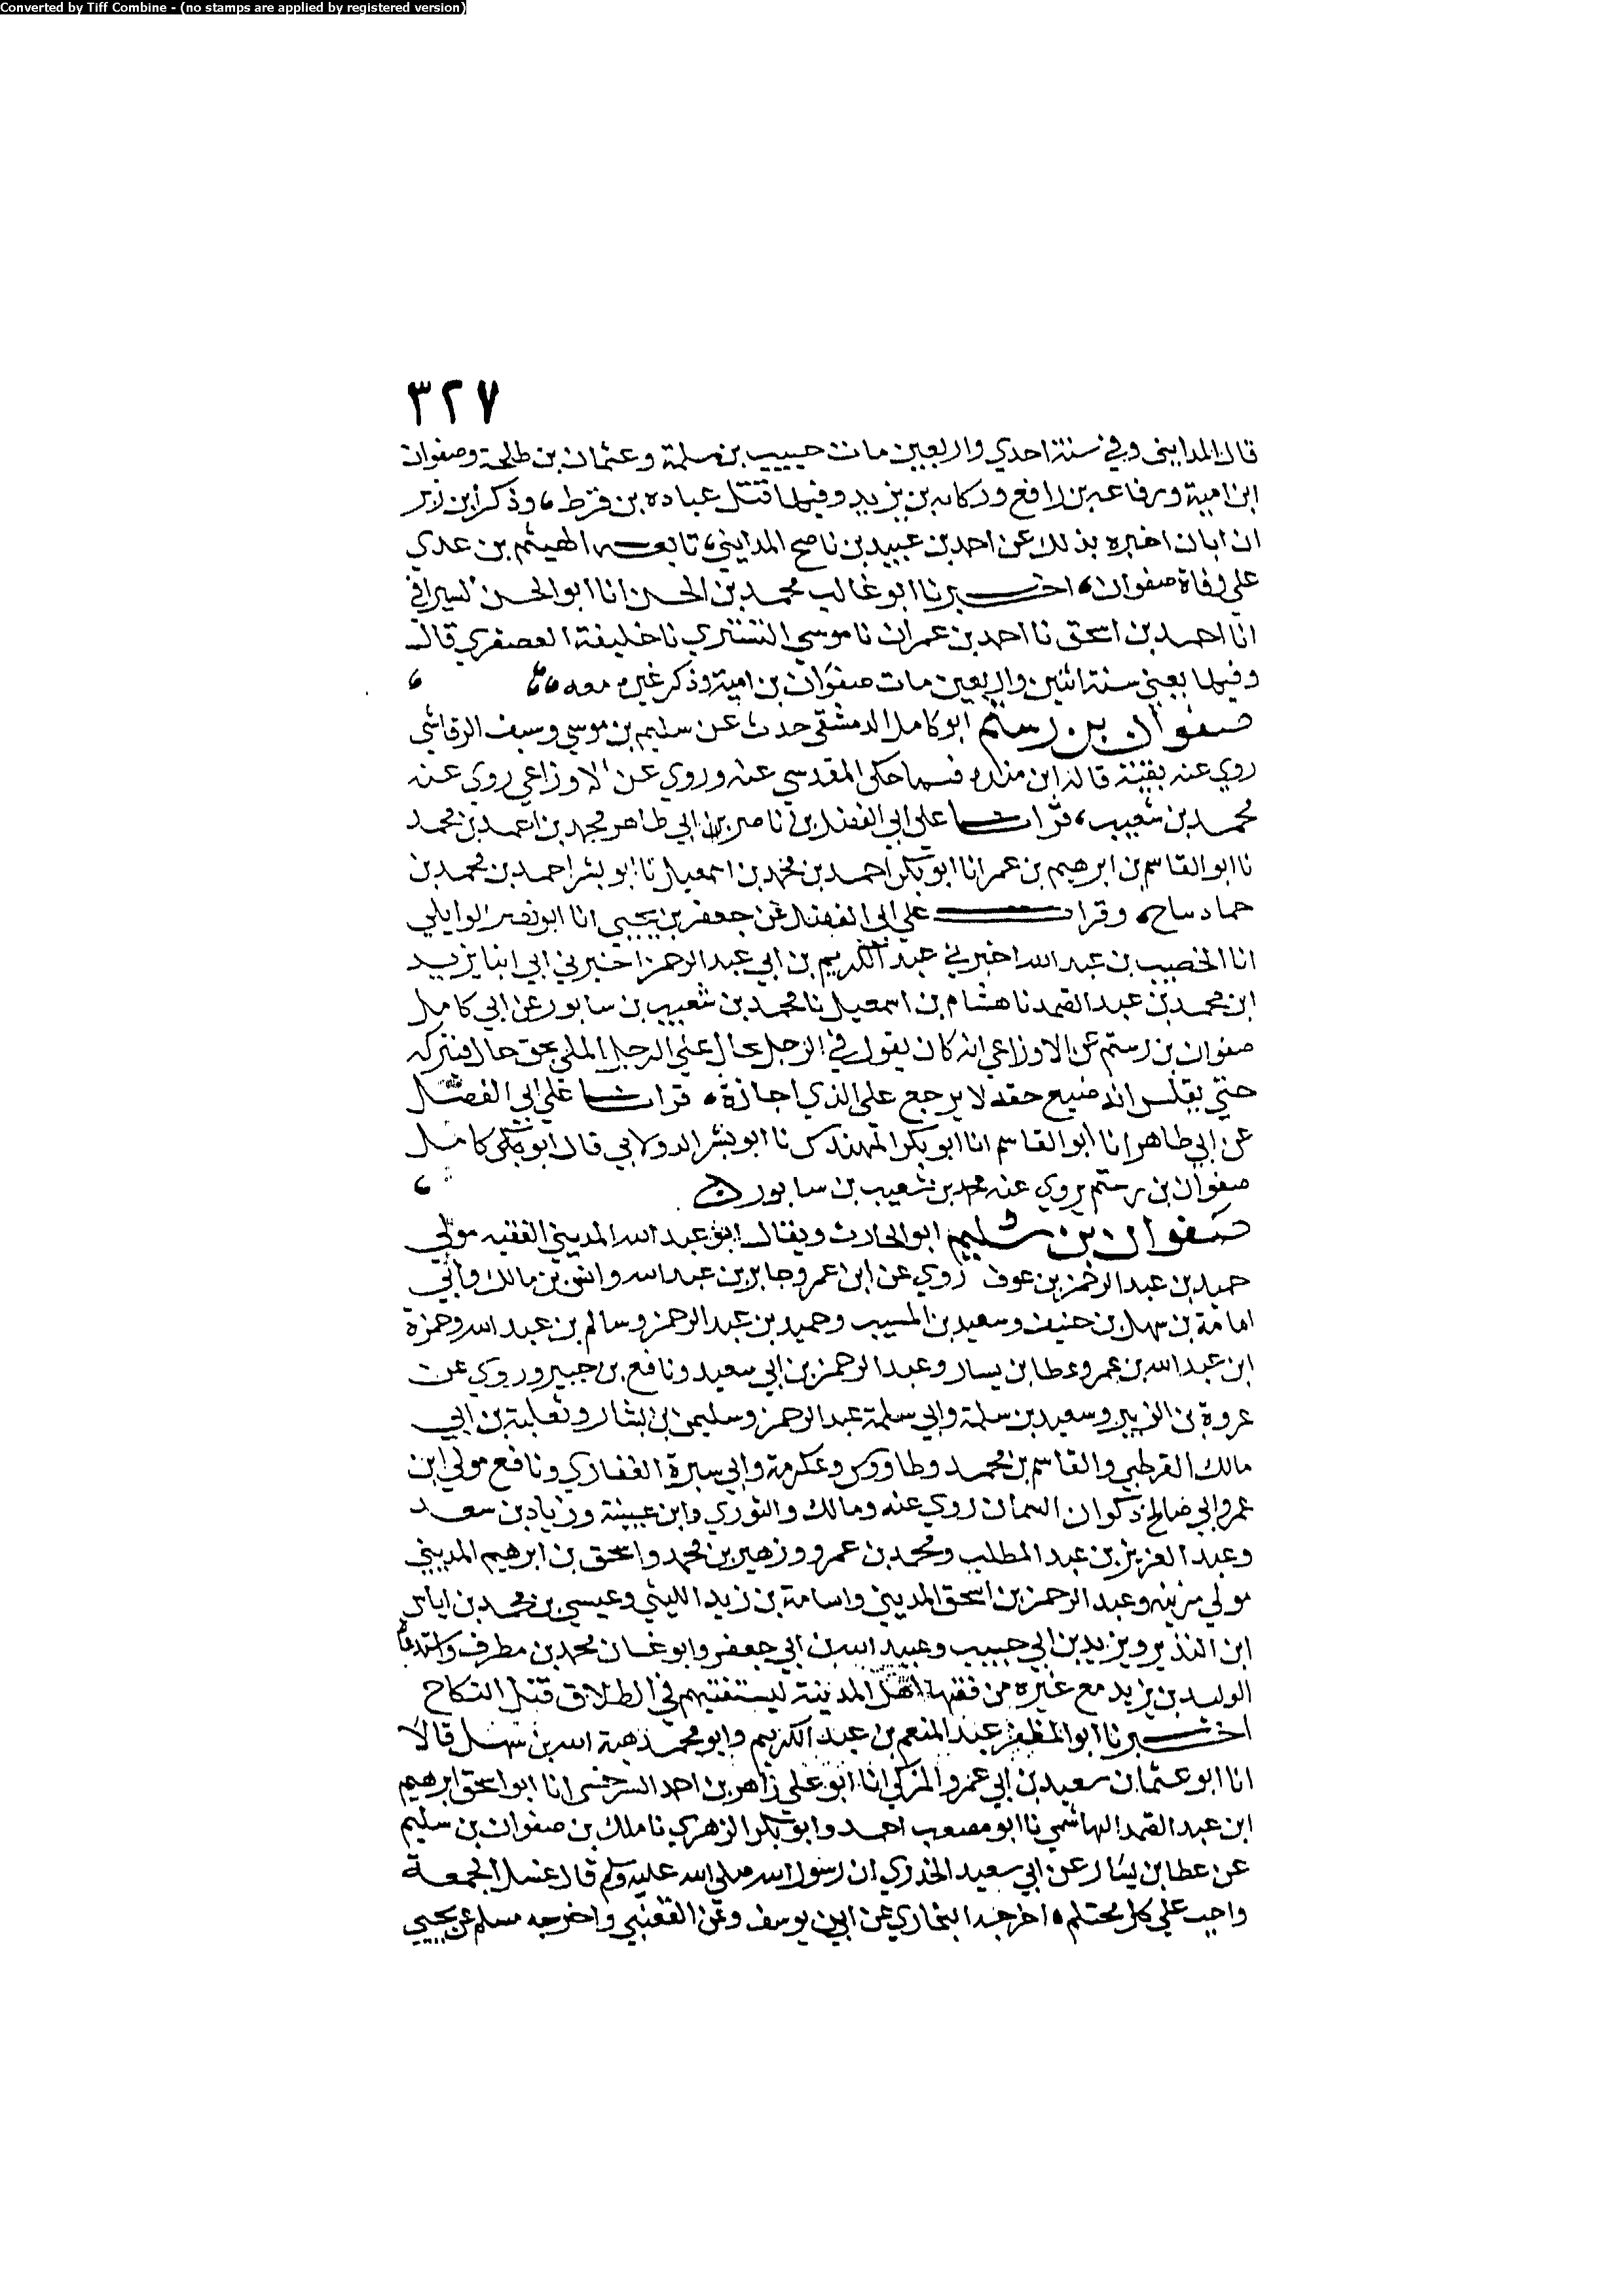 Converted by Tiff Combine - (no stamps are applied by registered version)
٣٢٧
قال المدايني وفي سنة احدي واربعين مات حبيب بن مسلمة وعثمان بن طلحة وصفوان
ابن امية ورفاعه بن رافع وركانه بن يزيد وفيها قتل عباده بن قرط، وذكر ابن زبر
ان اباه اخبره بذلك عن احمد بن عبيد بن ناصح المدايني، تابعه الهيثم بن عدي
علي وفاة صفوان، اخبرنا ابو غالب محمد بن الحسن انا ابو الحسن السيرافي
انا احمد بن اسحق نا احمد بن عمران نا موسي التستري نا خليفة العصفري قال
وفيها يعني سنة اثنين واربعين مات صفوان بن امية وذكر غيره معه
صفوان بن رستم ابو كامل الدمشقي حدث عن سليم بن موسي وسيف الرقاشي
روي عنه بقية قاله ابن منده فيما حكى المقدسي عنه وروي عن الاوزاعي روي عنه
محمد بن شعيب، قرات على ابي الفضل بن ناصر بن ابي طاهر محمد بن احمد بن محمد
نا ابو القاسم بن ابرهيم بن عمر انا ابو بكر احمد بن محمد بن اسمعيل نا ابو بشر احمد بن محمد بن
حماد ساح، وقرات علي ابي الفضل عن جعفر بن يحيي انا ابو نصر الوايلي
انا الخصيب بن عبد الله اخبرني عبد الكريم بن ابي عبد الرحمن اخبرني ابي انبا يزيد
ابن محمد بن عبد الصمد نا هشام بن اسمعيل نا محمد بن شعيب بن سابور عن ابي كامل
صفوان بن رستم عن الاوزاعي انه كان يقول في الرجل يحال علي الرجل الملي بحق حال فيتركه
حتي يفلس انه ضيع حقه لا يرجع علي الذي احاله، قرات علي ابي الفضل
عن ابي طاهر انا ابو القاسم انا ابو بكر المهندس نا ابو بشر الدولابي قال ابو كامل
صفوان بن رستم يروي عنه محمد بن شعيب بن سابور
صفوان بن سليم ابو الحارث ويقال ابو عبد الله المديني الفقيه مولي
حميد بن عبد الرحمن بن عوف روي عن ابن عمر وجابر بن عبد الله وانس بن مالك وابي
امامة بن سهل بن حنيف وسعيد بن المسيب وحميد بن عبد الرحمن وسالم بن عبد الله وحمزة
ابن عبد الله بن عمر وعطا بن يسار وعبد الرحمن بن ابي سعيد ونافع بن جبير وروي عن
عروة بن الزبير وسعيد بن سلمة وابي سلمة عبد الرحمن وسليمن بن يشار وثعلبة بن ابي
مالك القرظي والقاسم بن محمد وطاووس وعكرمة وابي سبرة الغفاري ونافع مولي ابن
عمر وابي صالح ذكوان السمان روي عنه ومالك والثوري وابن عيينة وزياد بن سعد
وعبد العزيز بن عبد المطلب ومحمد بن عمرو وزهير بن محمد واسحق بن ابرهيم المديني
مولي مزينه وعبد الرحمن بن اسحق المديني واسامة بن زيد الليثي وعيسي بن محمد بن اياس
ابن النذير ويزيد بن ابي حبيب وعبيد الله بن ابي جعفر وابو غسان محمد بن مطرف واستدعاه
الوليد بن يزيد مع غيره من فقها اهل المدينة ليستفتيهم في الطلاق قبل النكاح
اخبرنا ابو المظفر عبد المنعم بن عبد الكريم وابو محمد هبة الله بن سهل قالا
انا ابو عثمان سعيد بن ابي عمرو المزكي انا ابو علي زاهر بن احمد السرخسي انا ابو اسحق ابرهيم
ابن عبد الصمد الهاشمي نا ابو مصعب احمد وابو بكر الزهري نا ملك بن صفوان بن سليم
عن عطا بن يسار عن ابي سعيد الخدري ان رسول الله صلي الله عليه وسلم قال غسل الجمعة
واجب علي كل محتلم، اخرجه البخاري عن ابن يوسف وعن القعنبي واخرجه مسلم عن يحيي